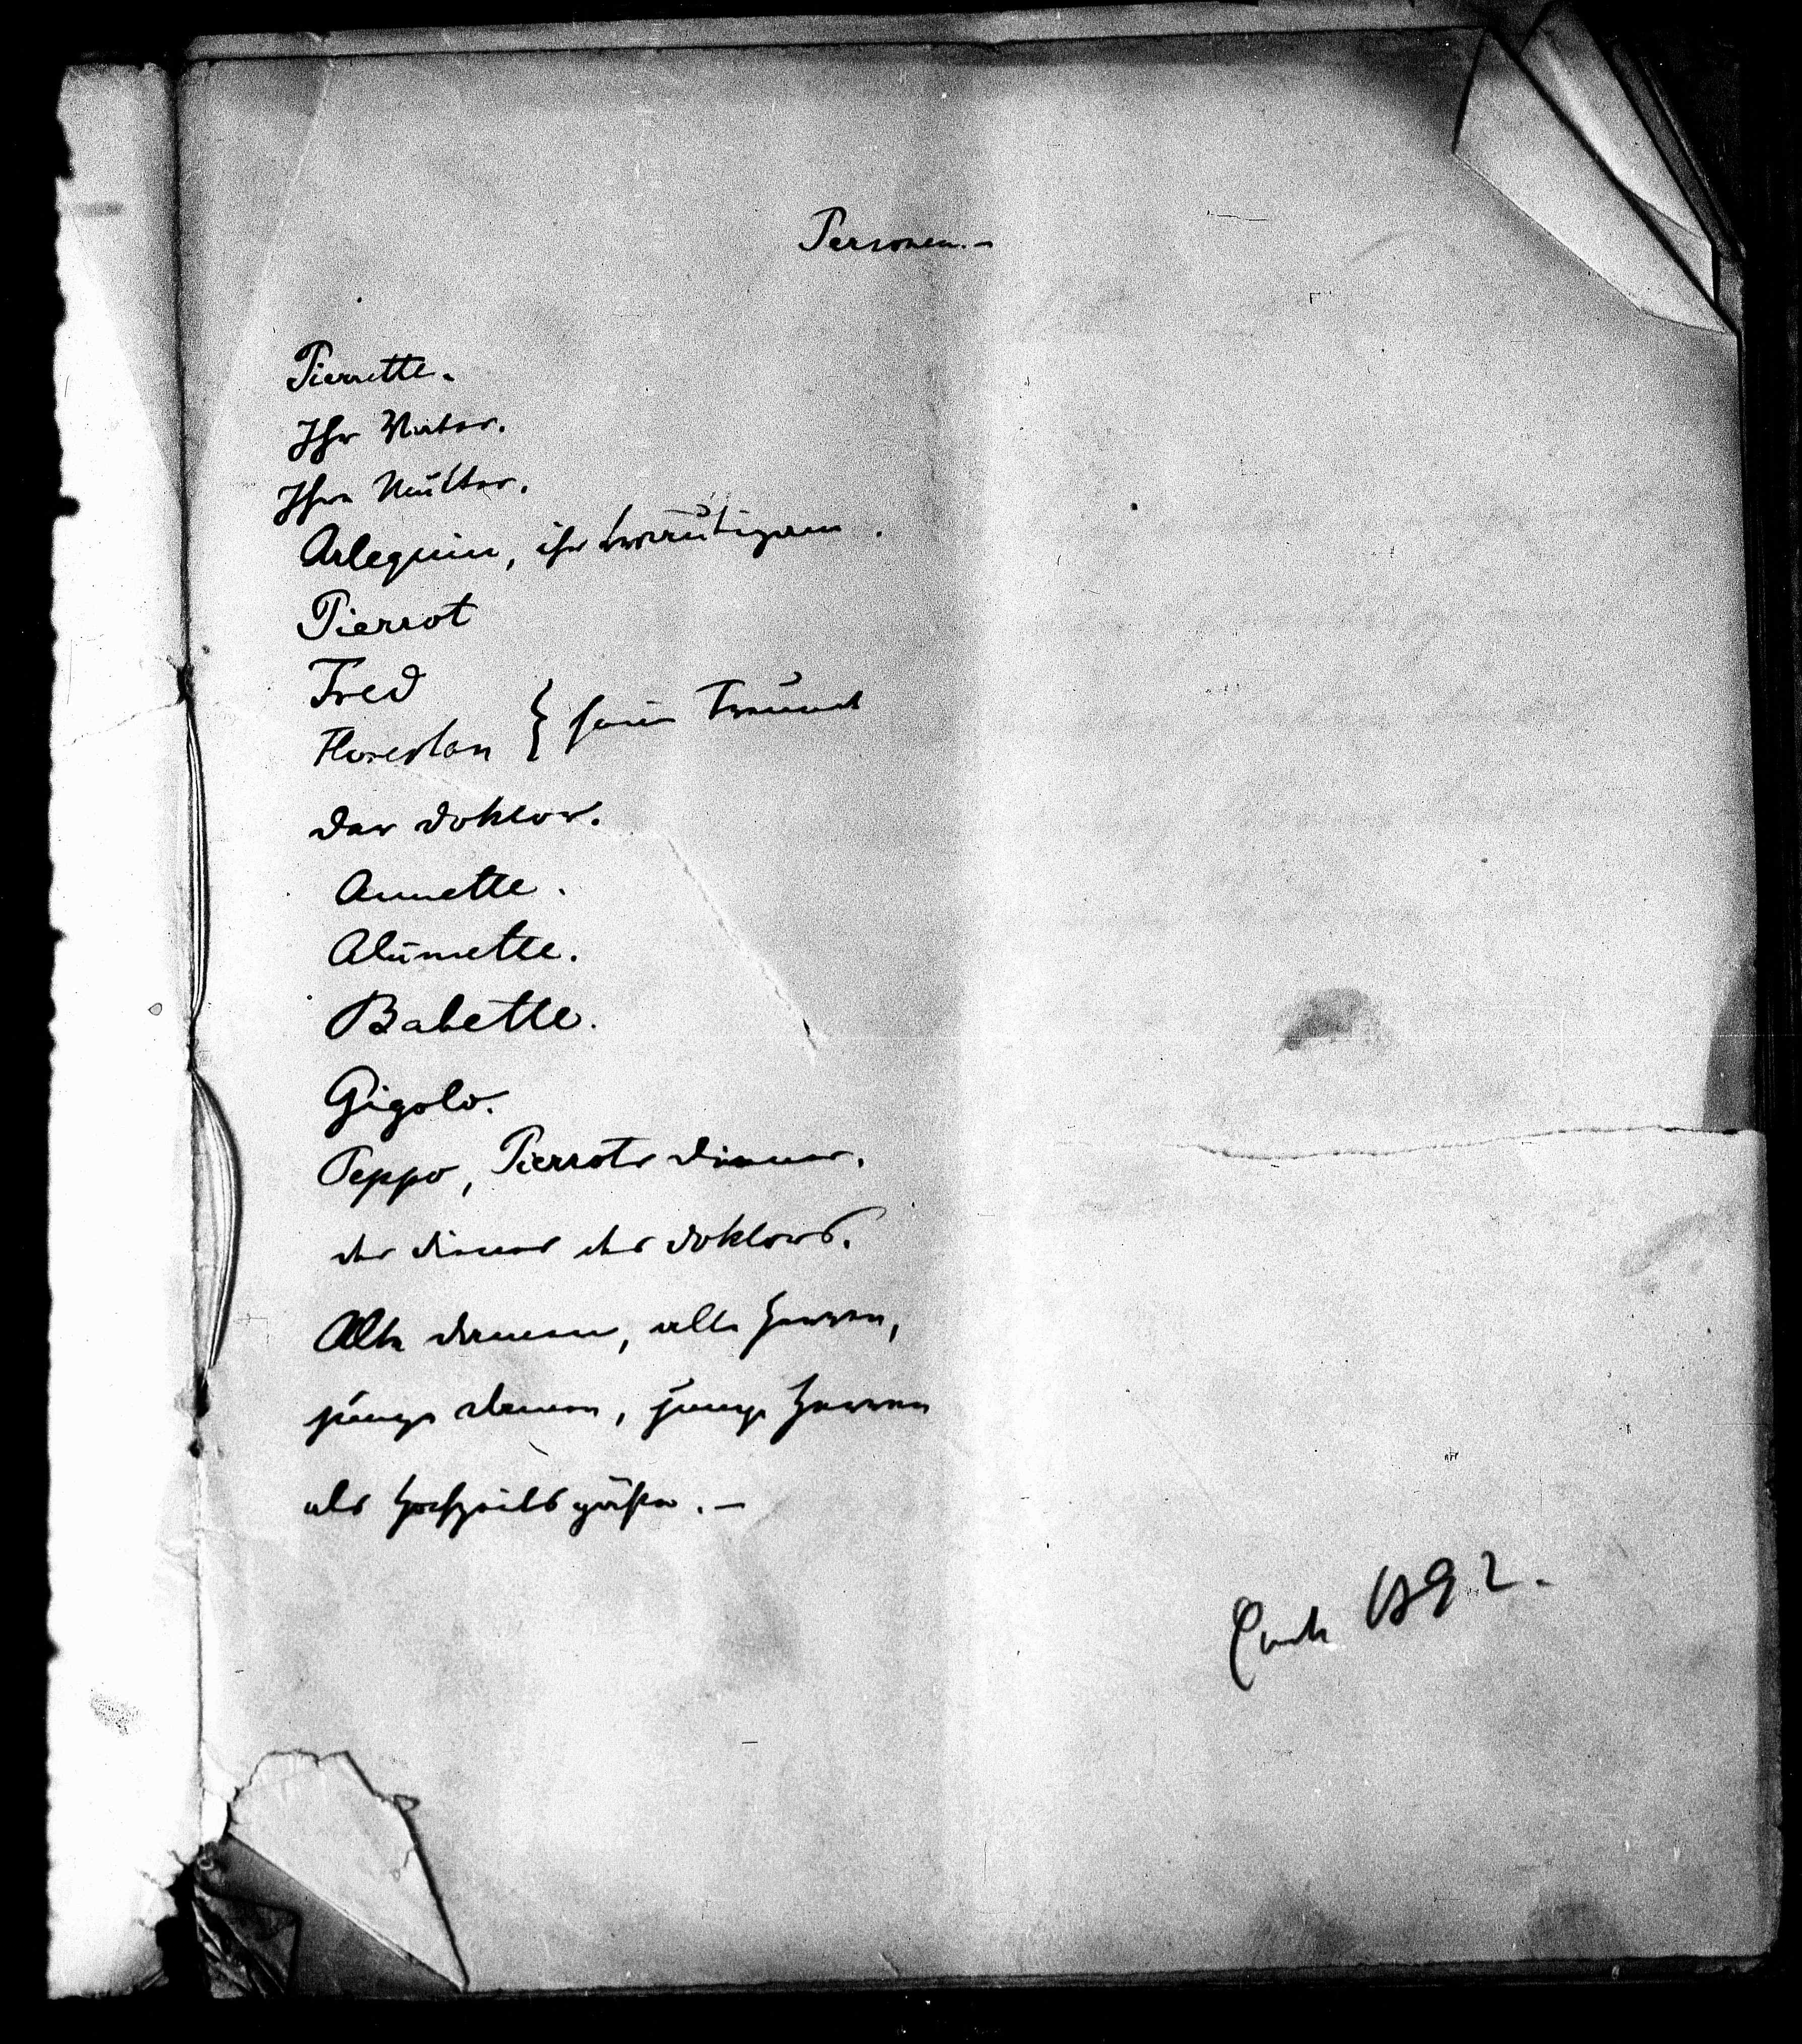 Personen.–
Pierrette.
Ihr Vater.
Ihre Mutter.
Arlequin, ihr Bräutigam.
Pierrot
Fred
Florestan } seine Freunde
Der Doktor.
Annette.
Alumette.
Babette.
Gigolo.
Peppo, Pierrots Diener.
Der Diener des Doktors.
Alte Damen, alte Herren,
junge Damen, junge Herren
als Hochzeitsgäste.–
Ende 1892.